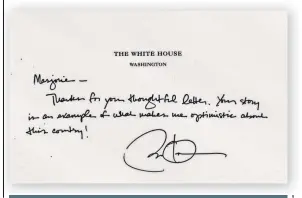 THE WHITE HOUSE
WASHINGTON
Marjorie —
Thanks for your thoughtful letter. Your story
is an example of what makes me optimistic about
this country!